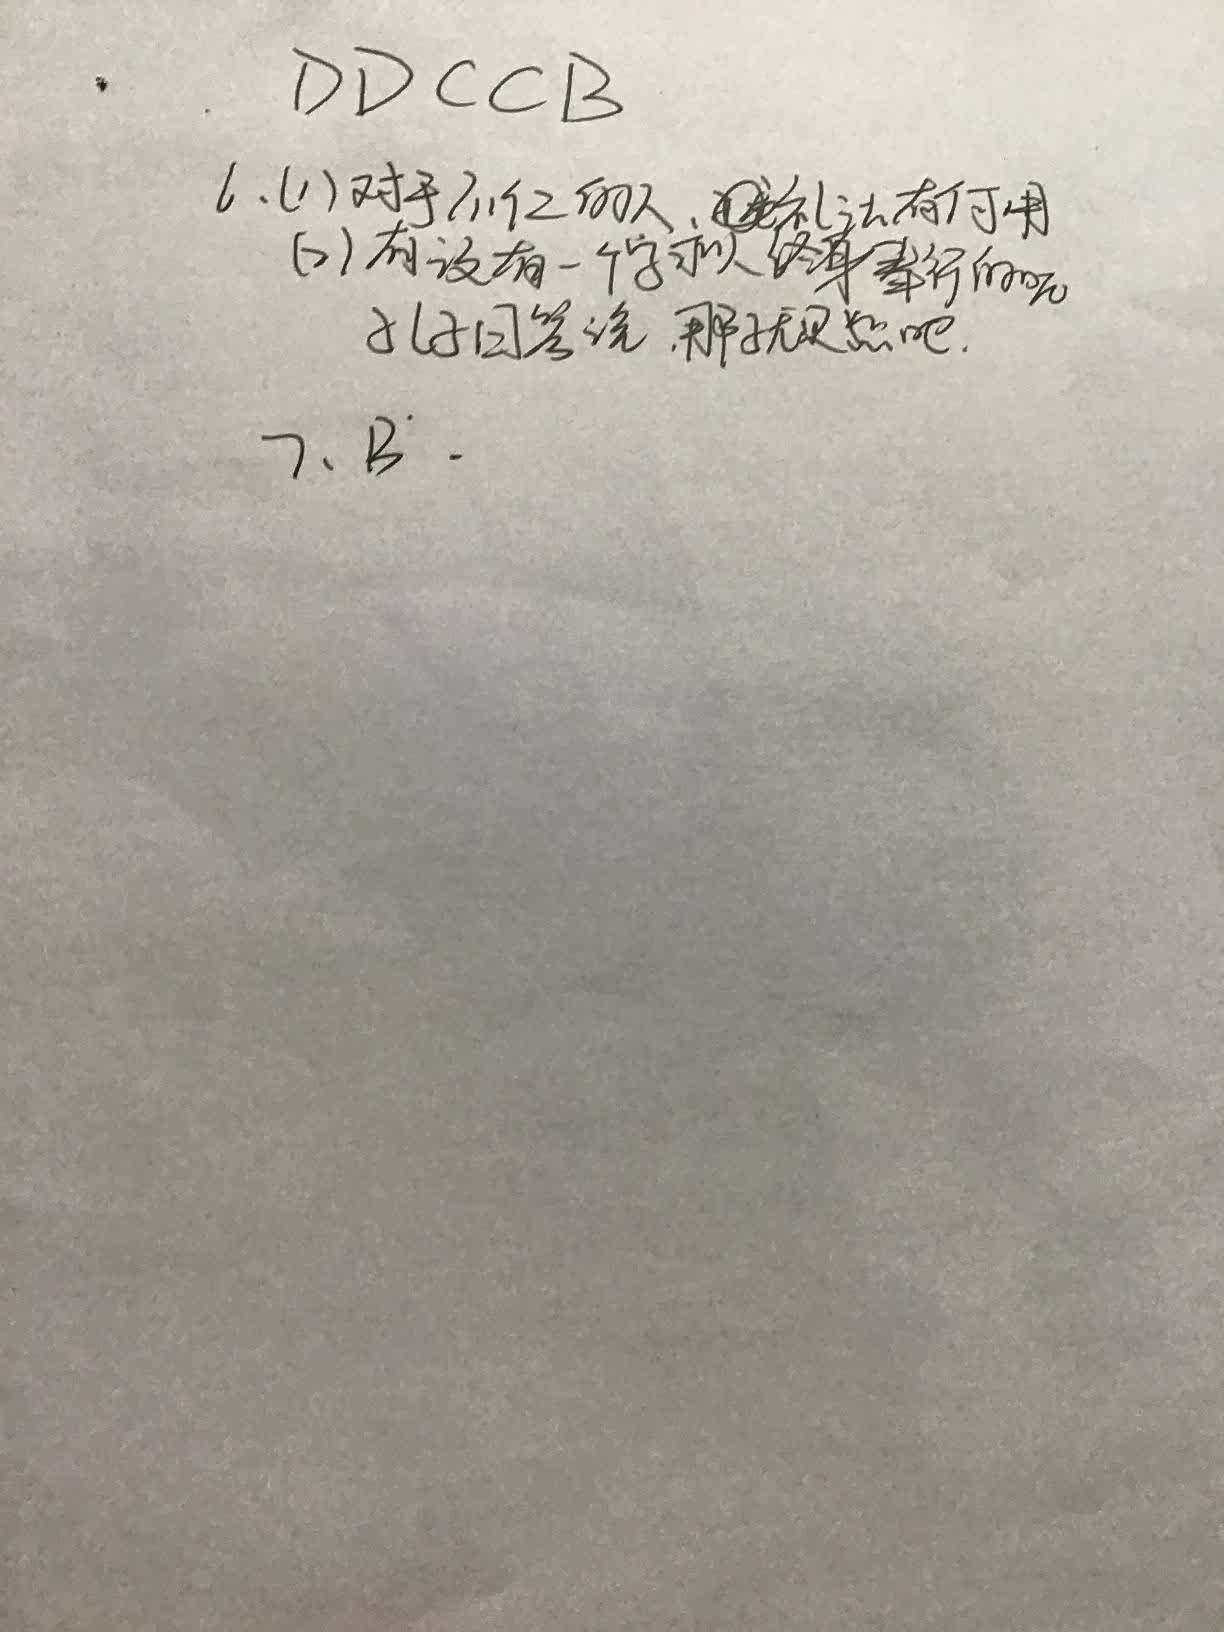 DDCCB
6.(1)对于不仁的人,礼法有何用
(2)有没有一个字可以终身奉行的呢
孔子回答说,那就是恕吧.
7、B.